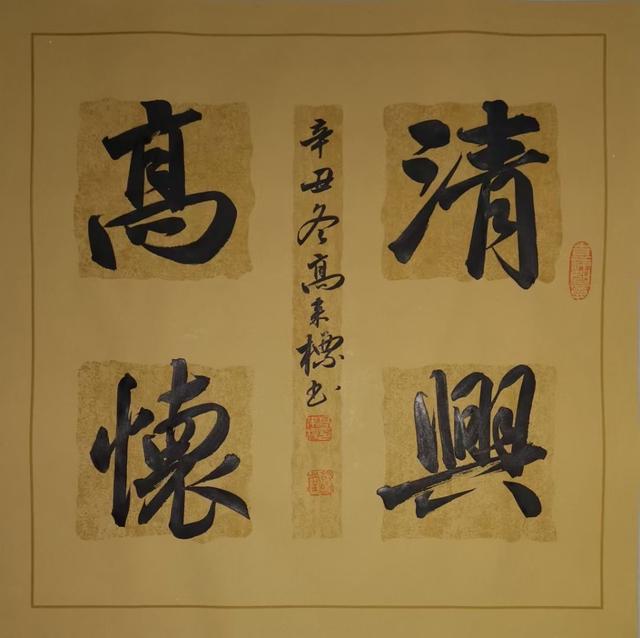 清興
高懷
辛丑冬高來標书